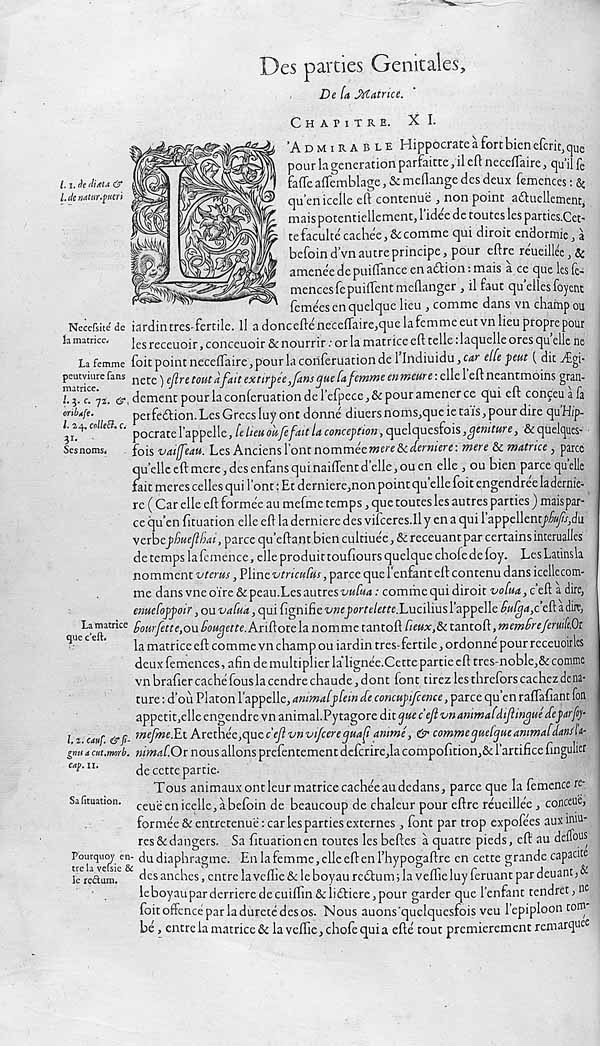 Des parties Genitales,
De la Matrice.
CHAPITRE. XI.
L'ADMIRABLE Hippocrate à fort bien escrit, que
pour la generation parfaitte, il est necessaire, qu'il se
fasse assemblage, & meslange des deux semences : &
qu'en icelle est contenuë, non point actuellement,
mais potentiellement, l'idée de toutes les parties. Cet-
te faculté cachée, & comme qui diroit endormie, à
besoin d'vn autre principe, pour estre réueillée, &
amenée de puissance en action : mais à ce que les se-
mences se puissent meslanger, il faut qu'elles soyent
semées en quelque lieu, comme dans vn champ ou
iardin tres-fertile. Il a donc esté necessaire, que la femme eut vn lieu propre pour
les receuoir, conceuoir & nourrir : or la matrice est telle : laquelle ores qu'elle ne
soit point necessaire, pour la conseruation de l'Indiuidu, car elle peut ( dit Ægi-
nete ) estre tout à fait extirpée, sans que la femme en meure : elle l'est neantmoins gran-
dement pour la conseruation de l'espece, & pour amener ce qui est conçeu à sa
perfection. Les Grecs luy ont donné diuers noms, que ie tais, pour dire qu'Hip-
pocrate l'appelle, le lieu où se fait la conception, quelquesfois, geniture, & quelques-
fois vaisseau. Les Anciens l'ont nommée mere & derniere : mere & matrice, parce
qu'elle est mere, des enfans qui naissent d'elle, ou en elle, ou bien parce qu'elle
fait meres celles qui l'ont : Et derniere, non point qu'elle soit engendrée la dernie-
re ( Car elle est formée au mesme temps, que toutes les autres parties ) mais par-
ce qu'en situation elle est la derniere des visceres. Il y en a qui l'appellent phusis, du
verbe phuesthai, parce qu'estant bien cultiuée, & receuant par certains interualles
de temps la semence, elle produit tousiours quelque chose de soy. Les Latins la
nomment vterus, Pline vtriculus, parce que l'enfant est contenu dans icelle com-
me dans vne oïre & peau. Les autres vulua : comme qui diroit volua, c'est à dire,
enueloppoir, ou valua, qui signifie vne portelette. Lucilius l'appelle bulga, c'est à dire,
boursette, ou bougette. Aristote la nomme tantost lieux, & tantost, membre seruile. Or
la matrice est comme vn champ ou iardin tres-fertile, ordonné pour receuoir les
deux semences, afin de multiplier la lignée. Cette partie est tres-noble, & comme
vn brasier caché sous la cendre chaude, dont sont tirez les thresors cachez de na-
ture : d'où Platon l'appelle, animal plein de concupiscence, parce qu'en rassasiant son
appetit, elle engendre vn animal. Pytagore dit que c'est vn animal distingué de par soy-
mesme. Et Arethée, que c'est vn viscere quasi animé, & comme quelque animal dans l'a-
nimal. Or nous allons presentement descrire, la composition, & l'artifice singulier
de cette partie.
Tous animaux ont leur matrice cachée au dedans, parce que la semence re-
ceuë en icelle, à besoin de beaucoup de chaleur pour estre réueillée, conceuë,
formée & entretenuë : car les parties externes, sont par trop exposées aux iniu-
res & dangers. Sa situation en toutes les bestes à quatre pieds, est au dessous
du diaphragme. En la femme, elle est en l'hypogastre en cette grande capacité
des anches, entre la vessie & le boyau rectum ; la vessie luy seruant par deuant, &
le boyau par derriere de cuissin & lictiere, pour garder que l'enfant tendret, ne
soit offencé par la dureté des os. Nous auons quelquesfois veu l'epiploon tom-
bé, entre la matrice & la vessie, chose qui a esté tout premierement remarquée
l. 1. de diæta &
l. de natur. pueri
Necessité de
la matrice.
La femme
peut viure sans
matrice.
l. 3. c. 72. &
oribase.
l. 24. collect. c.
31.
Ses noms.
La matrice
que c'est.
l. 2. caus. & si-
gnis acut. morb.
cap. 11.
Sa situation.
Pourquoy en-
tre la vessie &
le rectum.